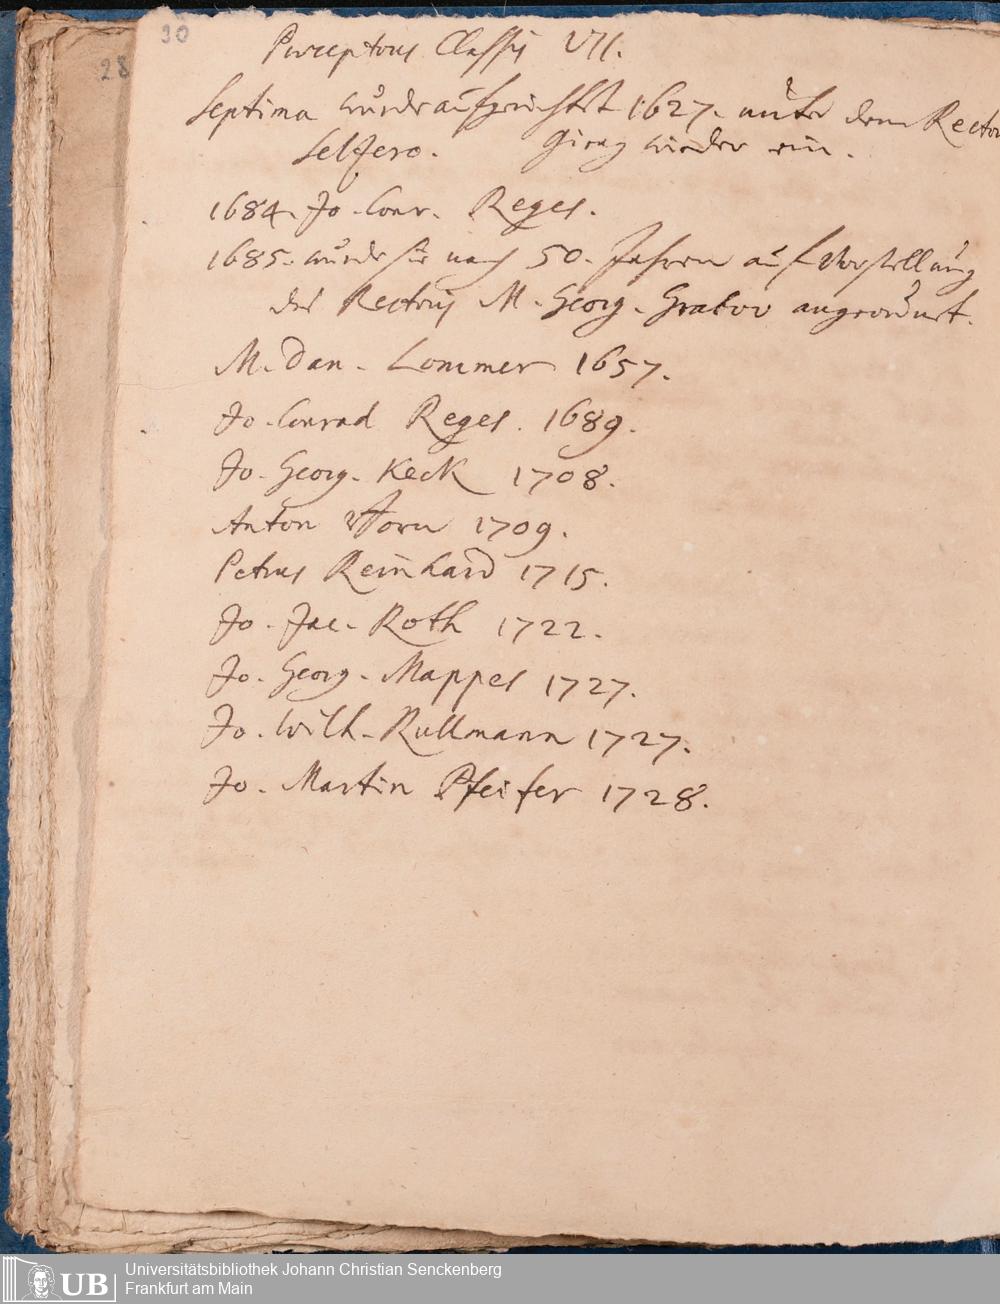 30
28
Praeceptores Classis VII.
Septima wurde aufgerichtet 1627. unter dem Rector
Selfero. Gieng wieder ein.
1684. Jo. Conr. Reges.
1685. wurde sie nach 50. Jahren auf Vorstellung
des Rectoris M. Georg. angeordnet.
M. Dan. Lommer 1657.
Jo. Conrad Reges. 1689.
Jo. Georg. Keck 1708.
Anton Horn 1709.
Petrus Reinhard 1715.
Jo. Jac. Roth 1722.
Jo. Georg. Mappes 1727.
Jo. Wilh. Rullmann 1727.
Jo. Martin Pfeifer 1728.
UB
Universitätsbibliothek Johann Christian Senckenberg
Frankfurt am Main